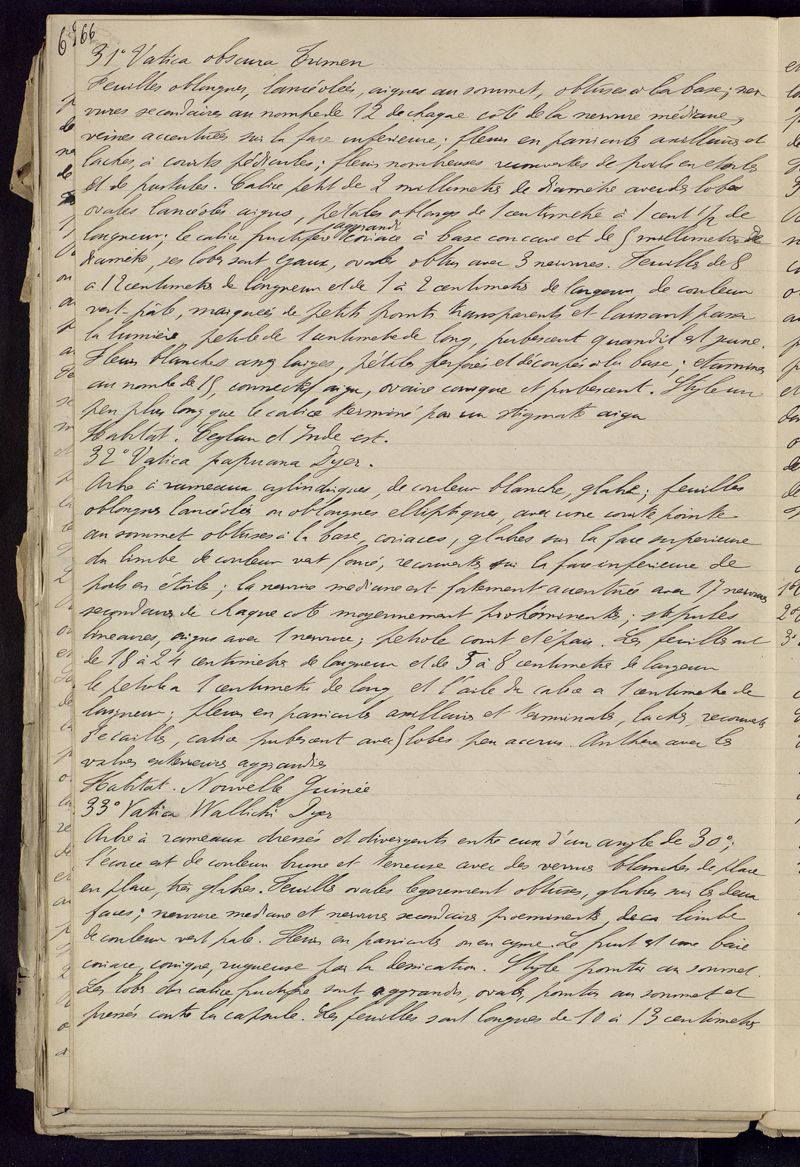 66
31° Vatica obscura Trimen
Feuilles oblongues, lancéolées, aigues au sommet, obtuses à la base; ner
vures secondaires au nombre de 12 de chaque côté de la nervure médiane,
veines accentuées sur la face inférieure; fleurs en panicules axillaires et
laches, à courts pédicules; fleurs nombreuses recouvertes de poils en étoiles
et de pustules. Calice petit de 2 millimetres de diametre avec des lobes
ovales lancéolés aigus, pétales oblongs de 1 centimetre à 1 cent 1/2 de
longueur; le calice fructifère aggrandi coriace à base concave et de 5 millimetres de
diametre, ses lobes sont égaux, ovales obtus avec 3 nervures. Feuilles de 8
à 12 centimetres de longueur et de 1 à 2 centimetres de largeur de couleur
vert-pâle, marquées de petits points transparents et laissant passer
la lumière, petiole de 1 centimetre de long, pubescent quand il est jeune.
Fleurs blanches assez larges, pétales perforés et découpés à la base; etamines
au nombre de 15, connectif aigu, ovaire conique et pubescent. Style un
peu plus long que le calice terminé par un stigmate aigu
Habitat. Ceylan et Inde est.
32° Vatica papuana Dyer.
Arbre à rameaux cylindriques, de couleur blanche, glabre; feuilles
oblongues lancéolées ou oblongues elliptiques, avec une courte pointe
au sommet obtuses à la base, coriaces, glabres sur la face superieure
du limbe de couleur vert foncé, recouvertes sur la face inferieure de
poils en étoiles; la nervure mediane est fortement accentuée avec 17 nervures
secondaires de chaque coté moyennement proéminentes; stipules
lineaires, aigues avec 1 nervure; petiole court et épais. Les feuilles ont
de 18 à 24 centimetres de longueur et de 5 à 8 centimetres de largeur
le petiole a 1 centimetre de long et l'aile du calice a 1 centimetre de
longueur; fleurs en panicules axillaires et terminales, laches, recouvertes
d'ecailles, calice pubescent avec 5 lobes peu accrus. Anthère avec les
valves exterieures aggrandies
Habitat. Nouvelle Guinée
33° Vatica Wallichi Dyer
Arbre à rameaux dressés et divergents entre eux d'un angle de 30°;
l'écorce est de couleur brune et veneuse avec des verrues blanches de place
en place, très glabres. Feuilles ovales legerement obtuses, glabres sur les deux
faces; nervure mediane et nervures secondaires proeminentes, limbe
de couleur vert pale. Fleurs en panicules ou en cyme. Le fruit est une baie
coriace, conique, rugueuse par la dessication. Style pointu au sommet.
Les lobes du calice fructifère sont aggrandis, ovales, pointus au sommet et
pressés contre la capsule. Les feuilles sont longues de 10 à 13 centimetres